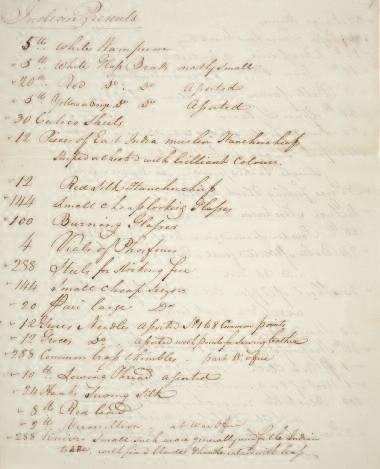 Indian Presents
5 lb White Wampum
5 lb White Glass Beads mostly small
20 lb Red Do. Do. assorted
5 lb Yellow or Orange Do Do assorted
30 Calico Shirts
12 Pieces of East India muslin Hanckerchiefs
striped or check'd with brilliant Colours.
12 Red Silk Hanckerchiefs
144 Small cheap looking Glasses
100 Burning Glasses
4 Vials of Phosforus
288 Steels for striking fire
144 Small cheap Scizors
20 Pair large Do
12 Groces Needles assorted No 1 to 8 Common points
12 Groces Do. assorted with points for sewing leather
288 Common brass thimbles - part W. office
10 lb Sewing Thread assorted
24 Hanks Sewing Silk
8 lb Red Lead
2 lb Vermillion at War Office
288 Knives Small such as are generally used for the Indian
trade, with fix'd blades & handles inlaid with brass